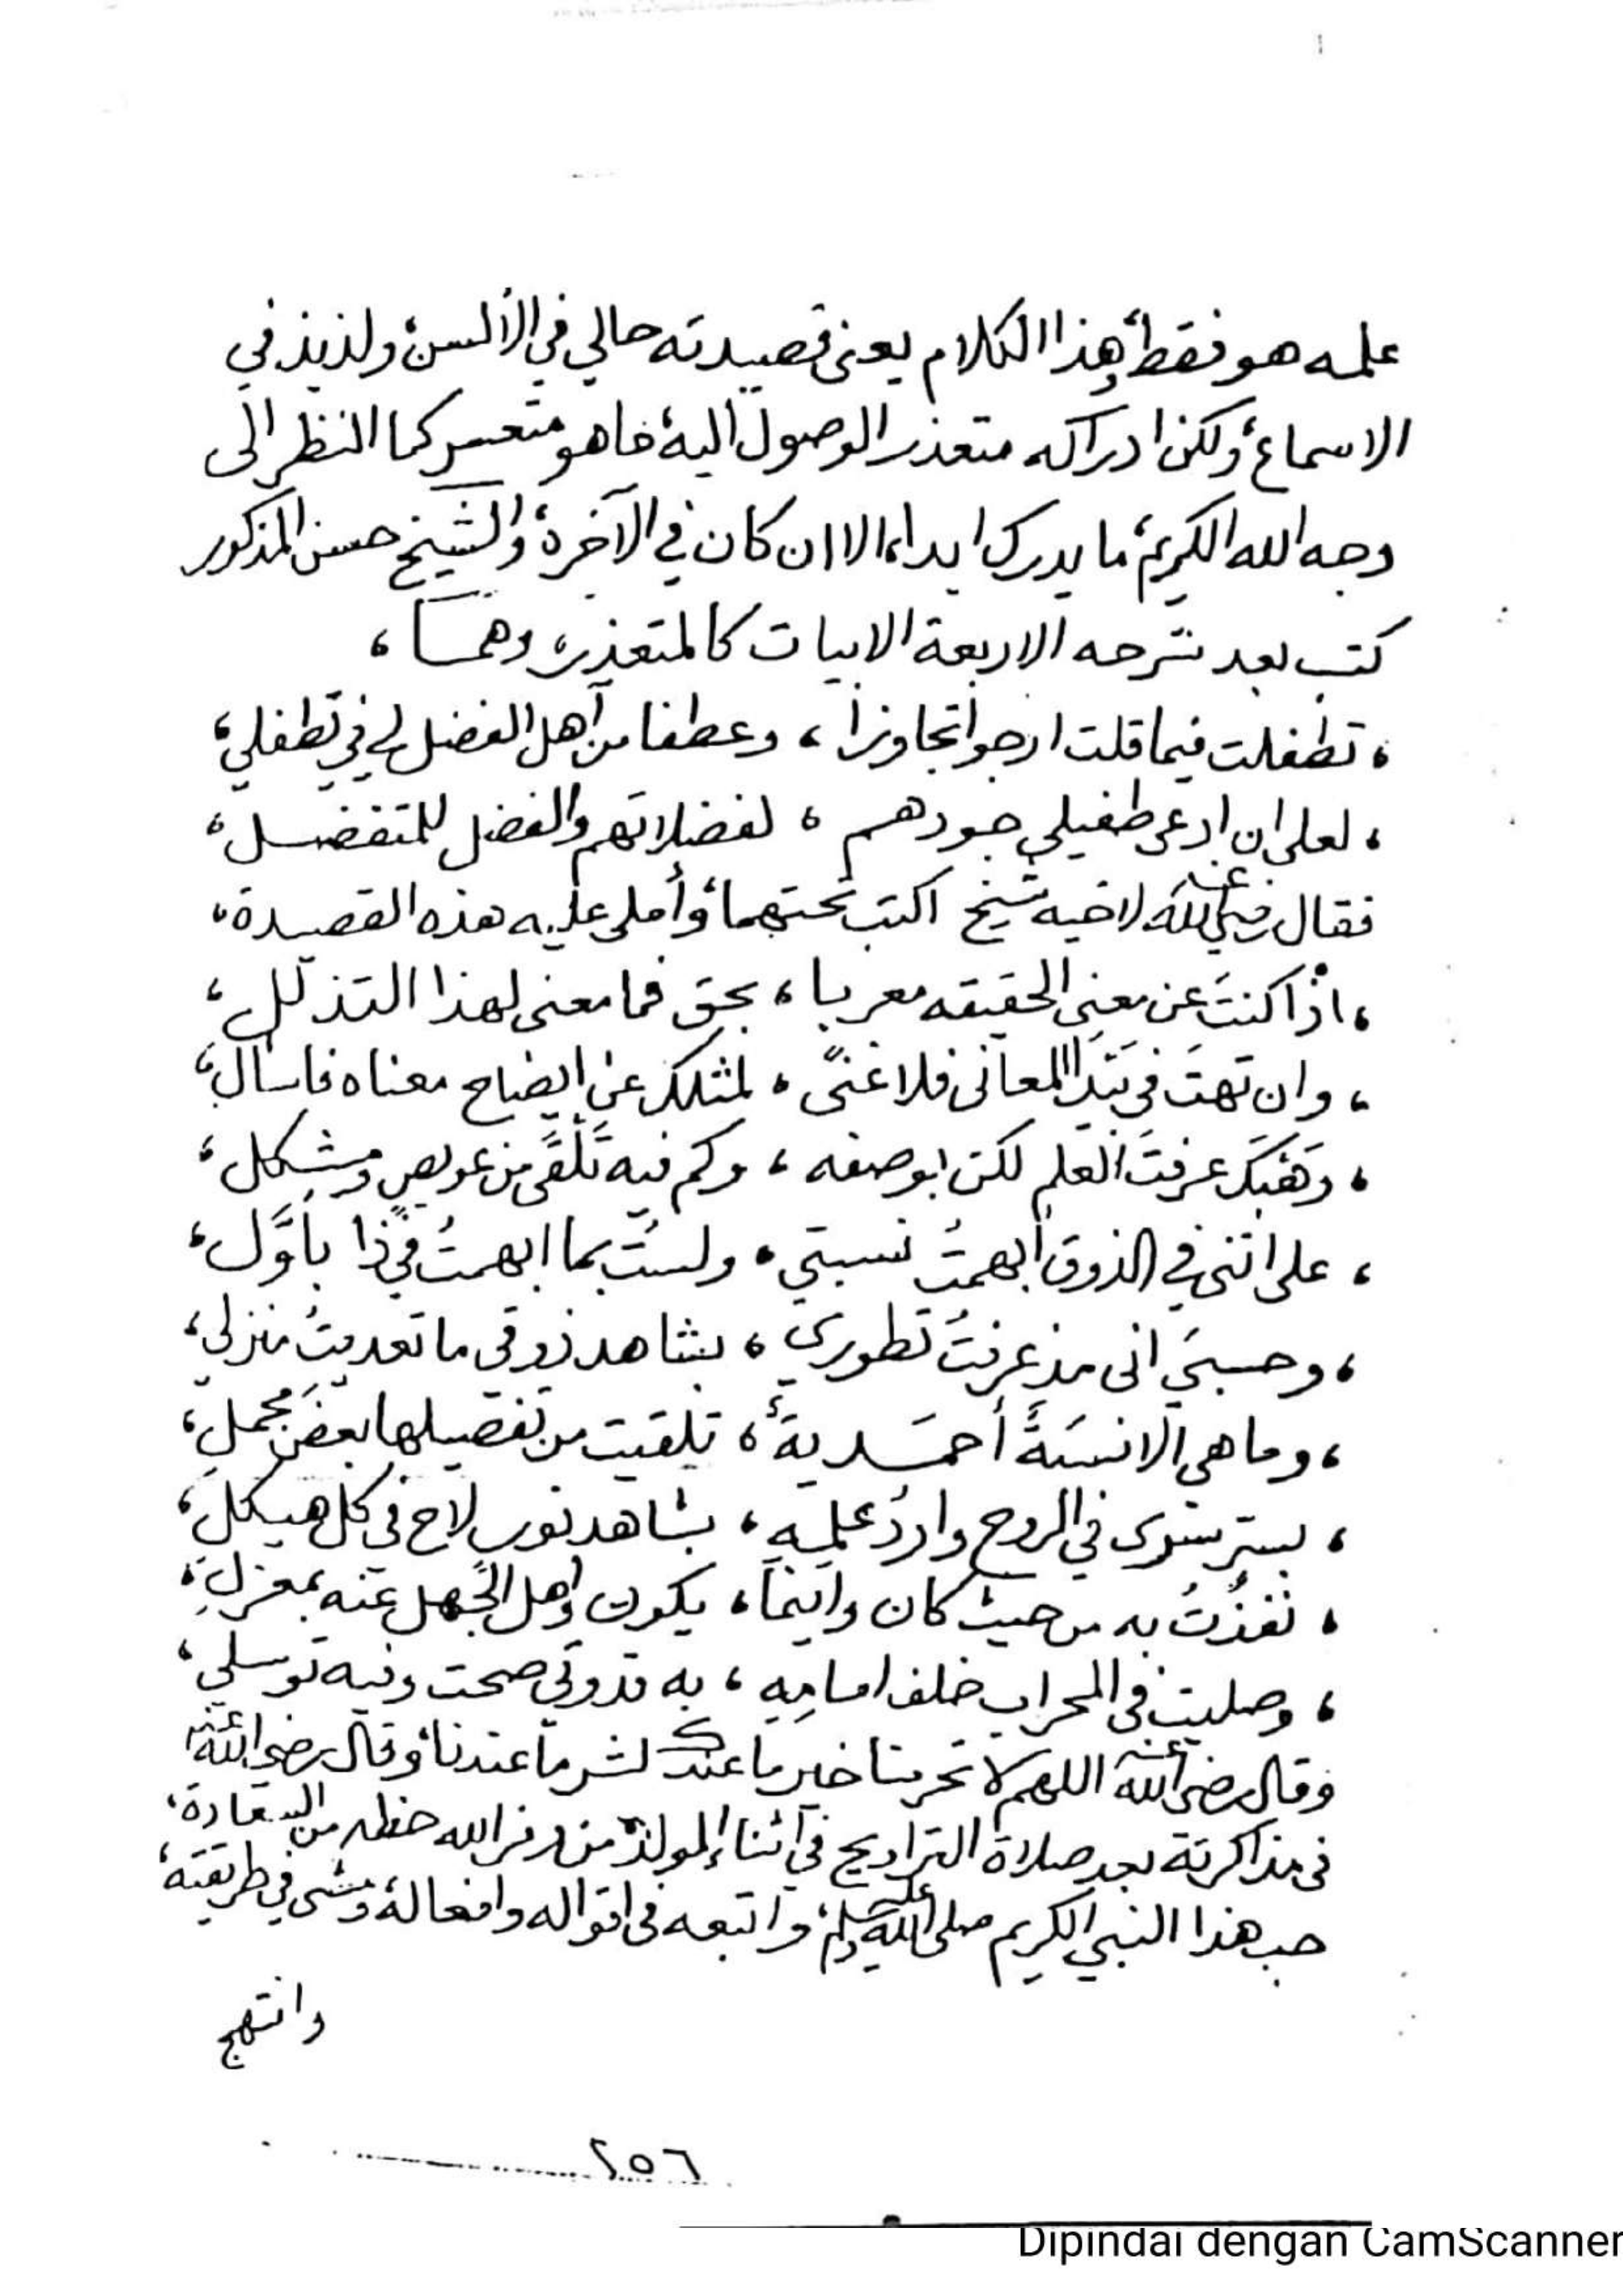 علمه هو فقط، وهذا الكلام يعنى قصيدته حالي في الألسن، ولذيذ في
الاسماع، ولكن ادراكه متعذر الوصول اليه، فاهو متعسر كما النظر الى
وجه الله الكريم، ما يدرك ابدا، الا ان كان في الآخرة، والشيخ حسن المذكور
كتب بعد شرحه الاربعة الابيات كالمتعذر، وهمــا ،
، تطفلت فيما قلت ارجو تجاوزا ، وعطفا من أهل الفضل لي في تطفلي ،
، لعلى ان ادعى طفيلي جودهم ، لفضلاتهم والفضل للمتفضل ،
فقال رضي الله عنه لاخيه شيخ اكتب تحتهما، وأملى عليه هذه القصيدة ،
، اذا كنتَ عن معنى الحقيقه معربا ، بحق فما معنى لهذا التذلل ،
، وان تهتَ في بَيْدا المعانى فلا غنىً ، لمثلك عن ايضاح معناه فاسأل ،
، وَهَبْكَ عرفتَ العلم لكن بوصفه ، وكم فيه تَلْقَى من عويصٍ ومشكل ،
، على اننى في الذوق أبهمتُ نسبتي ، ولستُ بما ابهمتُ في ذا بأوَّل ،
، وحسبيَ انى مذ عرفتُ تطوري ، بشاهد ذوقى ما تعديتُ منزلى ،
، وما هى الا نسبَةً أحمَـديةً ، تلقيت من تفصيلها بعضَ مجملِ ،
، بسرٍ سَرَى في الروح واردُ علمِه ، بشاهد نور لاح فى كل هيكل ،
، نفذْتُ به من حيث كان واينما ، يكون واهل الجهل عنه بمعزلِ ،
، وصليت فى المحراب خلف امامِهِ ، به قدوتي صحت وفيه توسلي ،
وقال رضي الله عنه اللهم لا تحرمنا خير ما عندك لشر ما عندنا، وقال رضي الله عنه
فى مذاكرته بعد صلاة التراويح في أثناء المولد، من وفر الله حظه من السعادة ،
حب هذا النبي الكريم صلى الله عليه وسلم، واتبعه فى اقواله وافعاله، ومشى في طريقته ،
وانتهج
٢٥٦
Dipindai dengan CamScanner